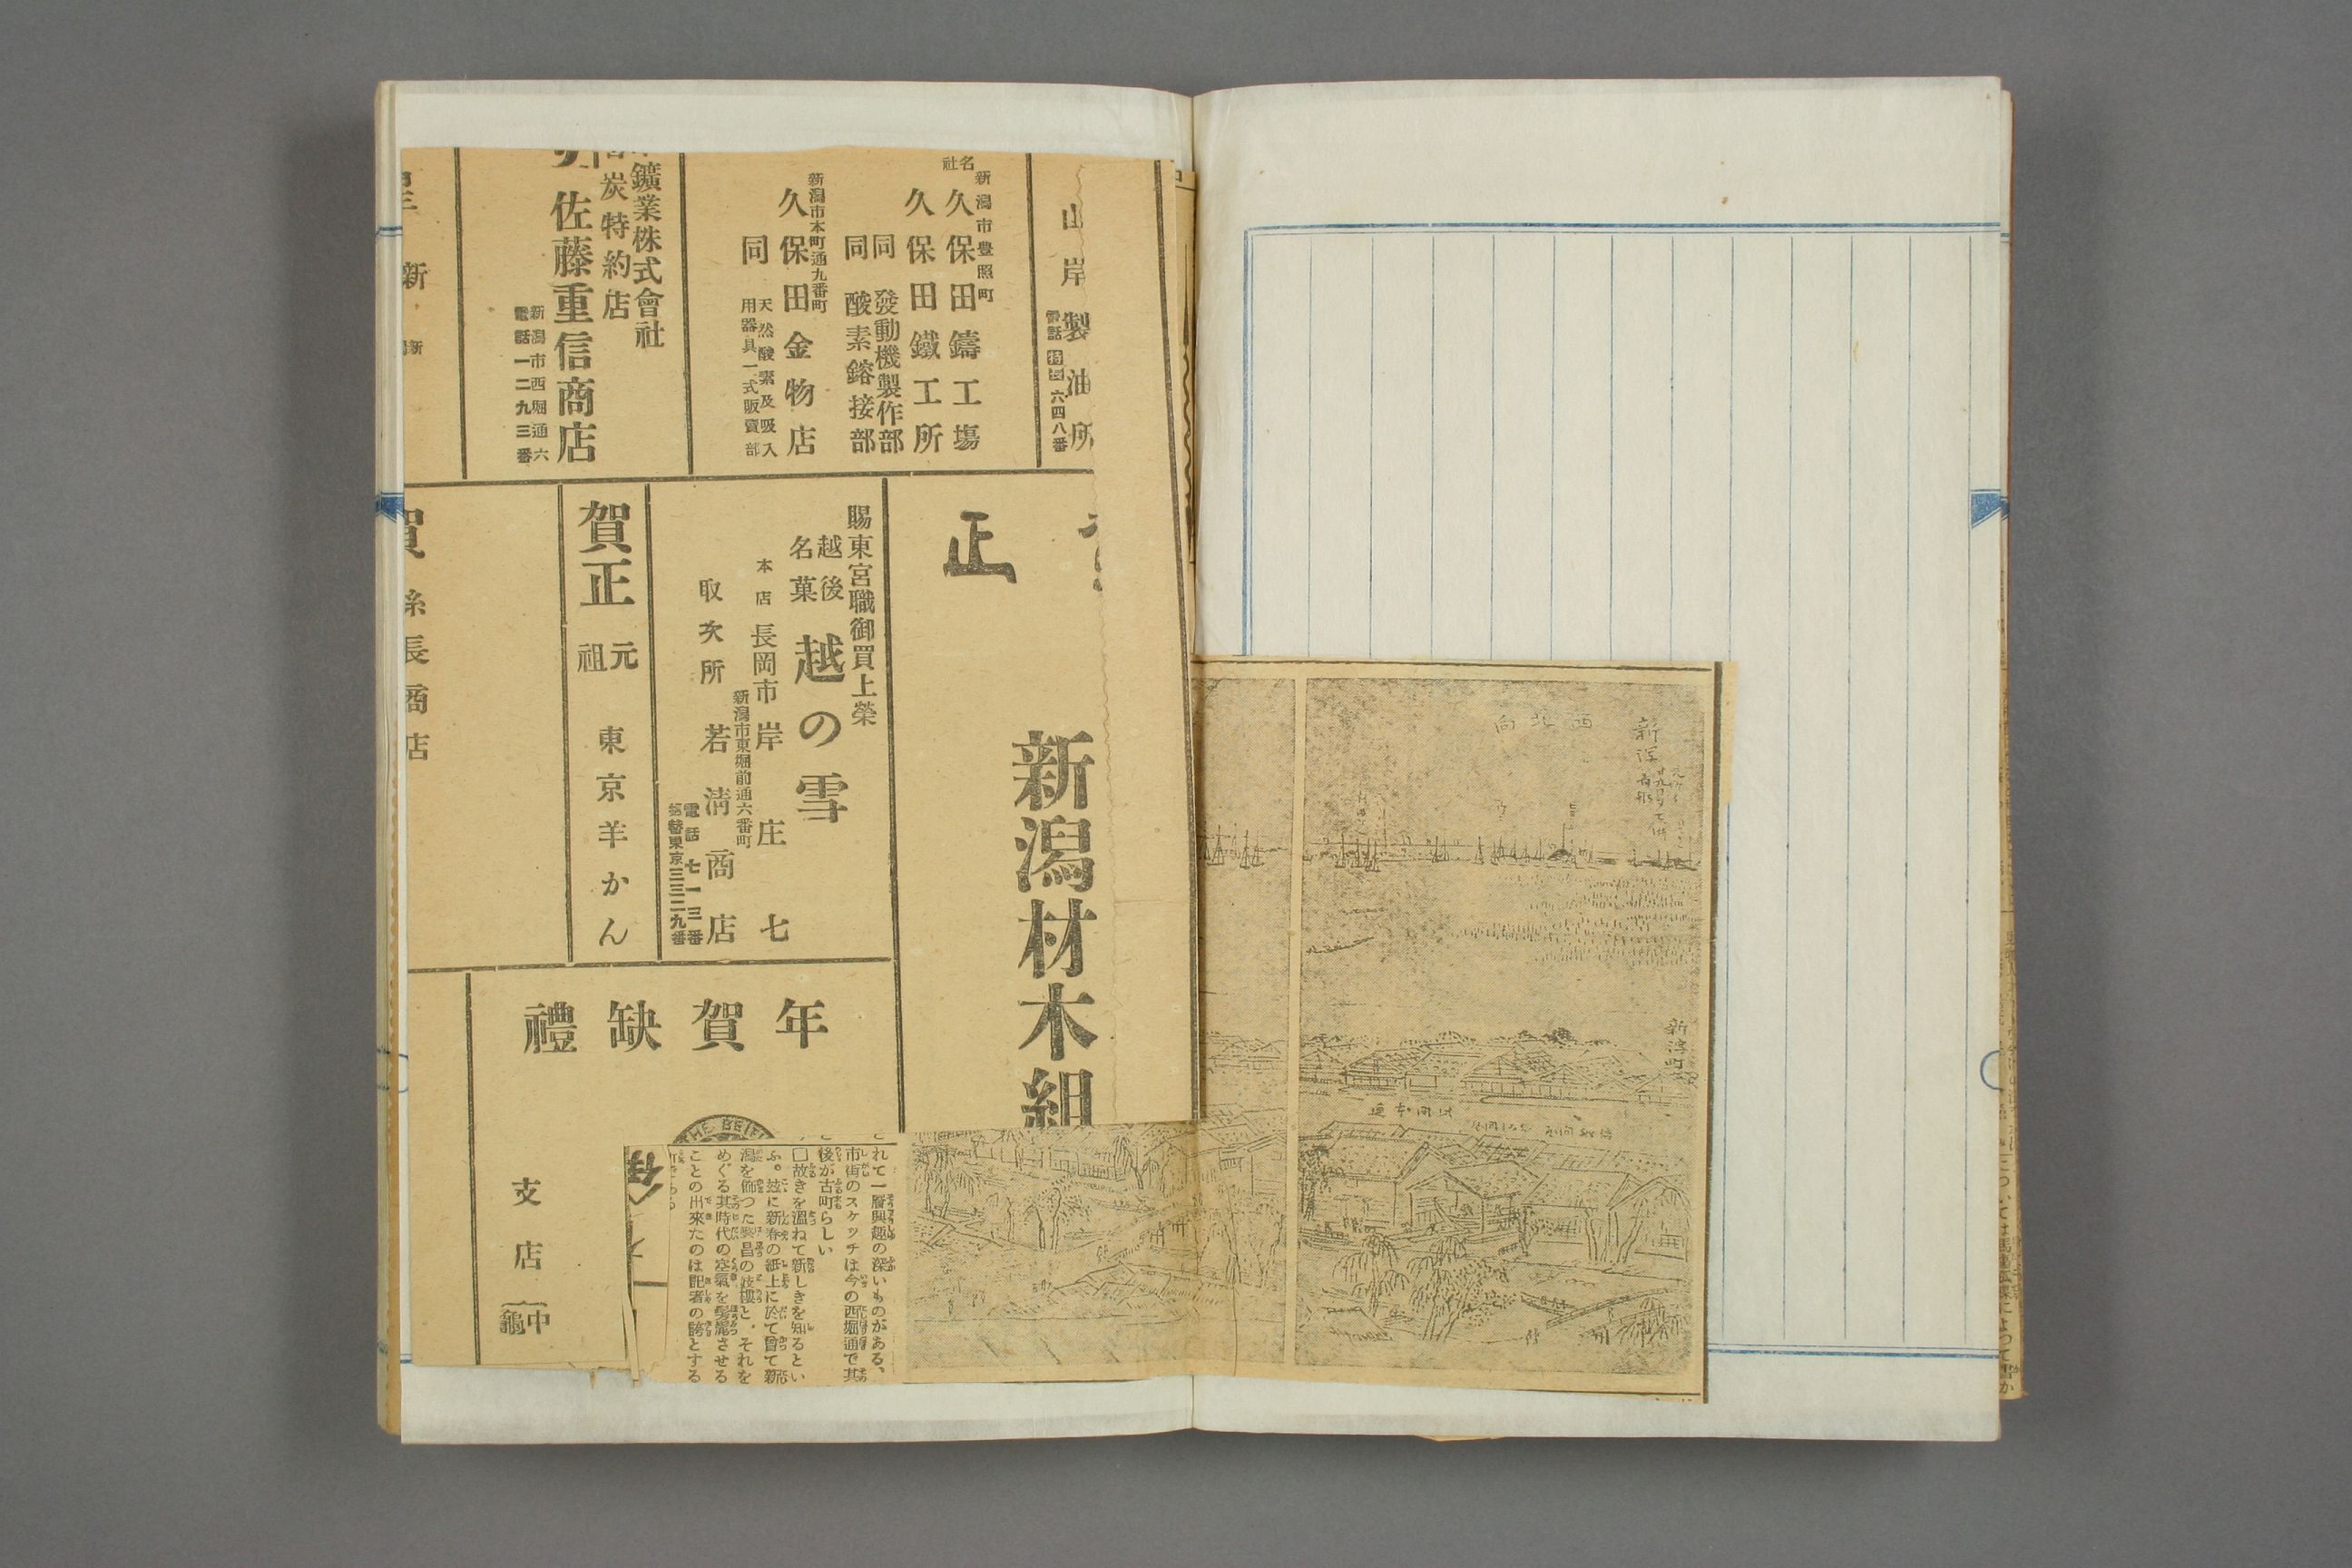 山岸製油所
電話特長六四八番
新潟市豊照町
久保田鑄工場
久保田鐵工所
同 發動機製作部
同 酸素鎔接部
新潟市本町通九番町
久保田金物店
同 天然酸素及吸入
用器具一式販賣部
鑛業株式會社
炭特約店
佐藤重信商店
新潟市西堀通六
電話一二九三番
新
正
新潟材木組
賜東宮職御買上榮
越後
名菓
越の雪
本店 長岡市 岸庄七
新潟市東堀前通六番町
取次所 若淸商店
電話七一三番
振替東京三三二九番
賀正
元祖
東京羊かん
賀
糸長商店
年賀缺禮
支店
中
龜
THE BEIE
れて一層興趣の深いものがある、
市街のスケッチは今の西堀通で其
後が古町らしい
□故きを溫ねて新しきを知るとい
ふ。玆に新春の紙上に於て曾て新
潟を飾つた繁昌の妓樓と、それを
めぐる其時代の空氣を髣髴させる
ことの出來たのは記者の誇とする
西北向
新
新
町